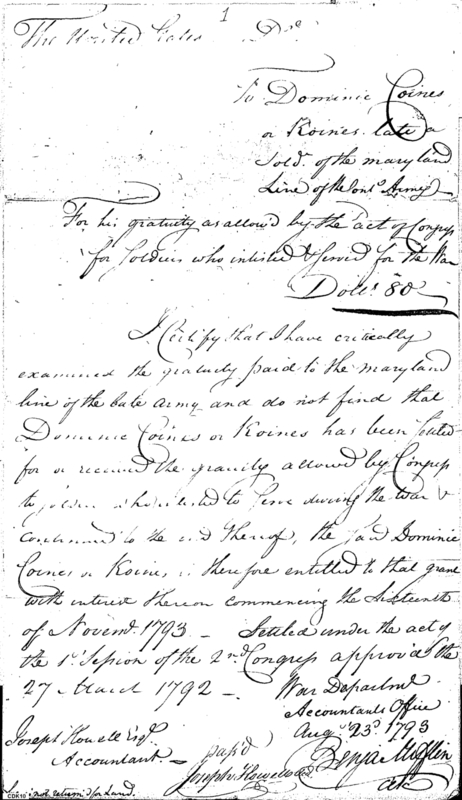 1
The United States Dr.
To Dominic Coines
or Koines late a
Sold.r of the maryland
Line of the Cont.l Army
For his gratuity as allow'd by the act of Congress
for Soldiers who inlisted & served for the War
Doll.s 80
I Certify that I have critically
examined the gratuity paid to the maryland
line of the late army and do not find that
Dominic Coines or Koines has been settled
for or received the gratuity allowed by Congress
to soldiers who inlisted to serve during the War &
continued to the end thereof, the said Dominic
Coines or Koines is therefore entitled to that grant
with interest thereon commencing the Sixteenth
of Novem.r 1793 — Settled under the act of
the 1st Session of the 2nd Congress approv'd the
27 March 1792 —
War Department
Accountants Office
Aug.st 23d 1793
Joseph Howell Esq.r
Accountant —
pass'd
Joseph Howell
Benja Mifflin
is not return'd for Land.
CDR10